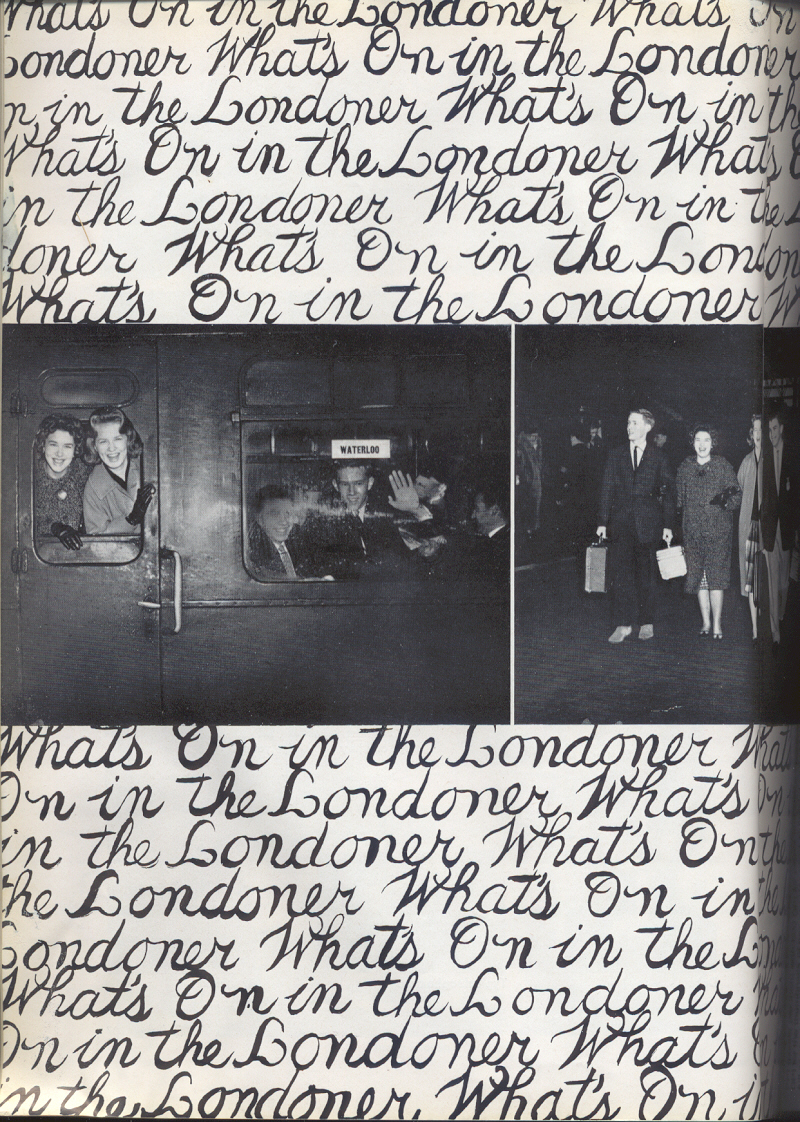 What's On in the Londoner What's On
ondoner What's On in the Londoner
n in the Londoner What's On in th
What's On in the Londoner What's
in the Londoner What's On in the
doner What's On in the Lon
What's On in the Londoner
WATERLOO
What's On in the Londoner What
On in the Londoner What's
in the Londoner What's On the
the Londoner What's On in the
Londoner What's On in the Lon
What's On in the Londoner
On in the Londoner What's
in the Londoner. What's On in